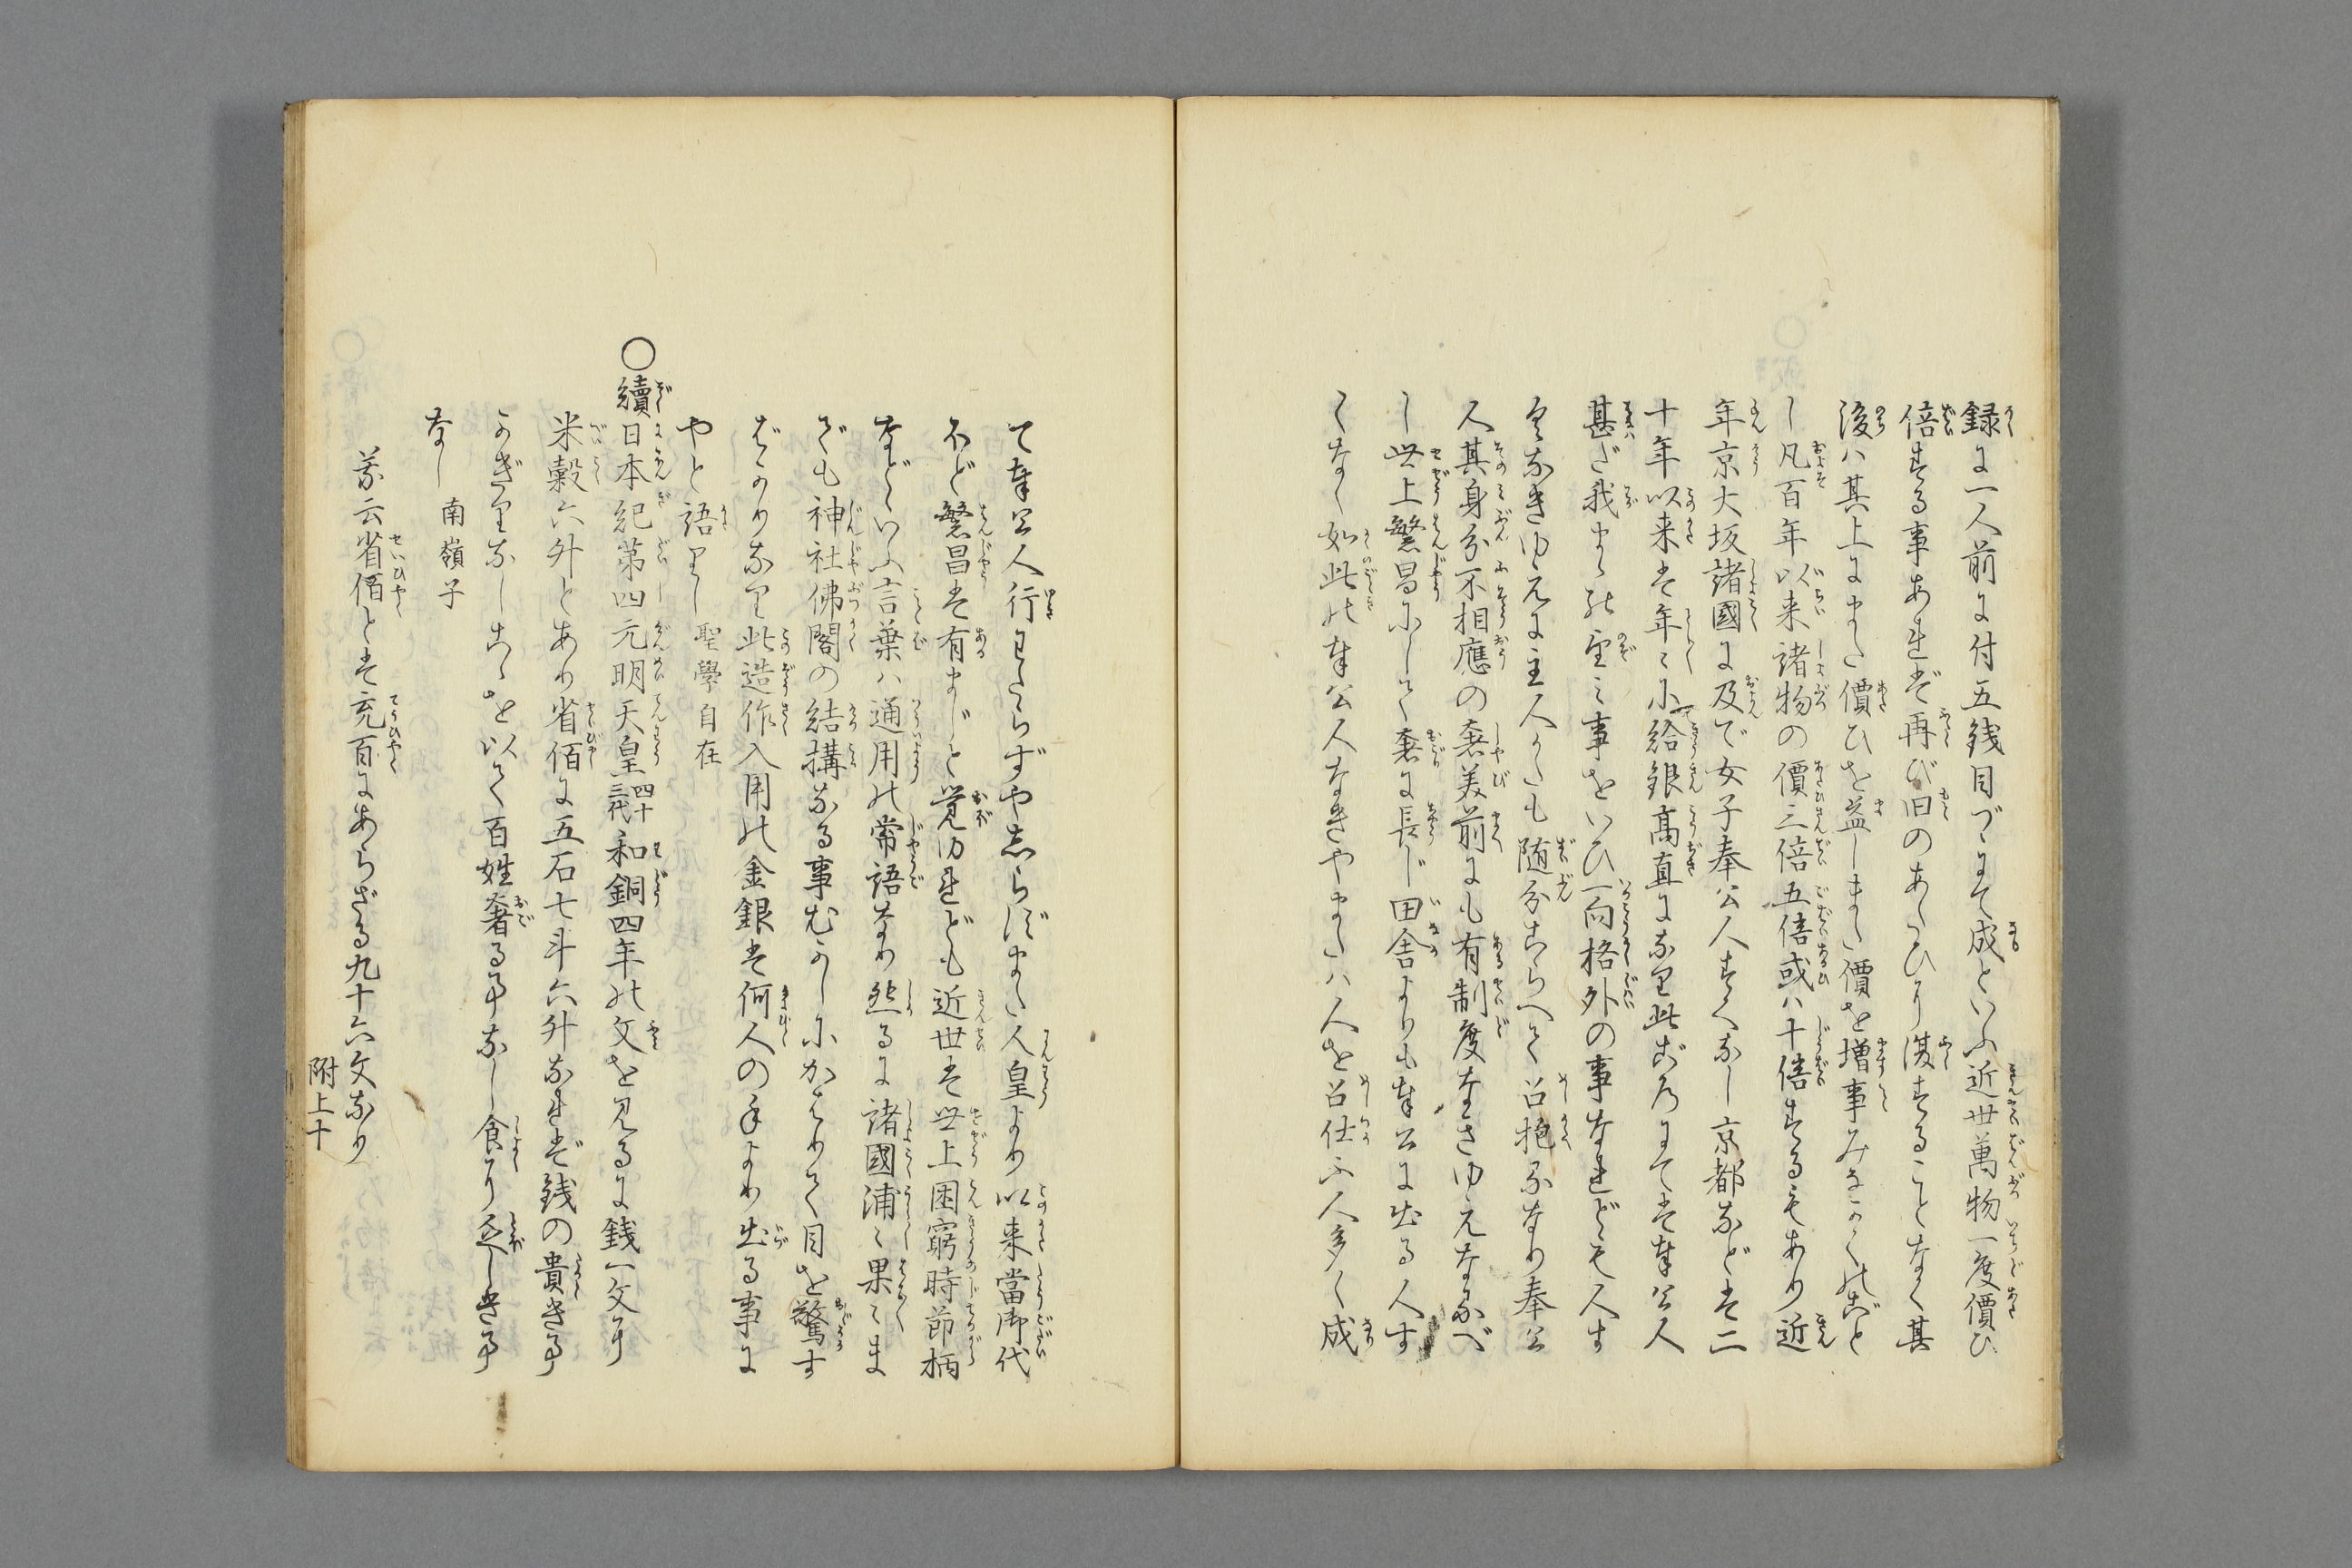 録に一人前に付五銭目づゝにて成といふ近世萬物一度價ひ
倍する事あれば再び旧のあたひに復することなく其
後ハ其上にまた價ひを益しまた價を増事みなかくのごと
し凡百年以来諸物の價三倍五倍或ハ十倍するもあり近
年京大坂諸國に及で女子奉公人すくなし京都などは二
十年以来は年〻に給銀髙直になり此ごろにては奉公人
甚だ我まゝの望〻事をいひ一向格外の事なれども人す
くなきゆへに主人かたも随分こらへて召抱るなり奉公
人其身分不相應の奢美前にも有制度なきゆえなるべ
し世上繁昌にして奢に長じ田舎よりも奉公に出る人す
くなく如此の奉公人なきやまたハ人を召仕ふ人多く成
て奉公人行わたらずやしらずまた人皇より以来當御代
ほど繁昌は有まじと覚ゆれども近世は世上困窮時節柄
などゝいふ言葉ハ通用の常語なり然るに諸國浦〻果〻ま
でも神社佛閣の結搆なる事むかしにかはりて目を驚す
ばかりなり此造作入用の金銀は何人の手より出る事に
やと語りし 聖學自在
〇續日本紀第四元明天皇四十三代和銅四年の文を見るに銭一文に
米穀六升とあり省佰に五石七斗六升なれば銭の貴き事
かぎりなしこゝを以て百姓奢る事なし食に乏しき事
なし 南嶺子
茂云省佰とは充百にあらざる九十六文なり
附上十